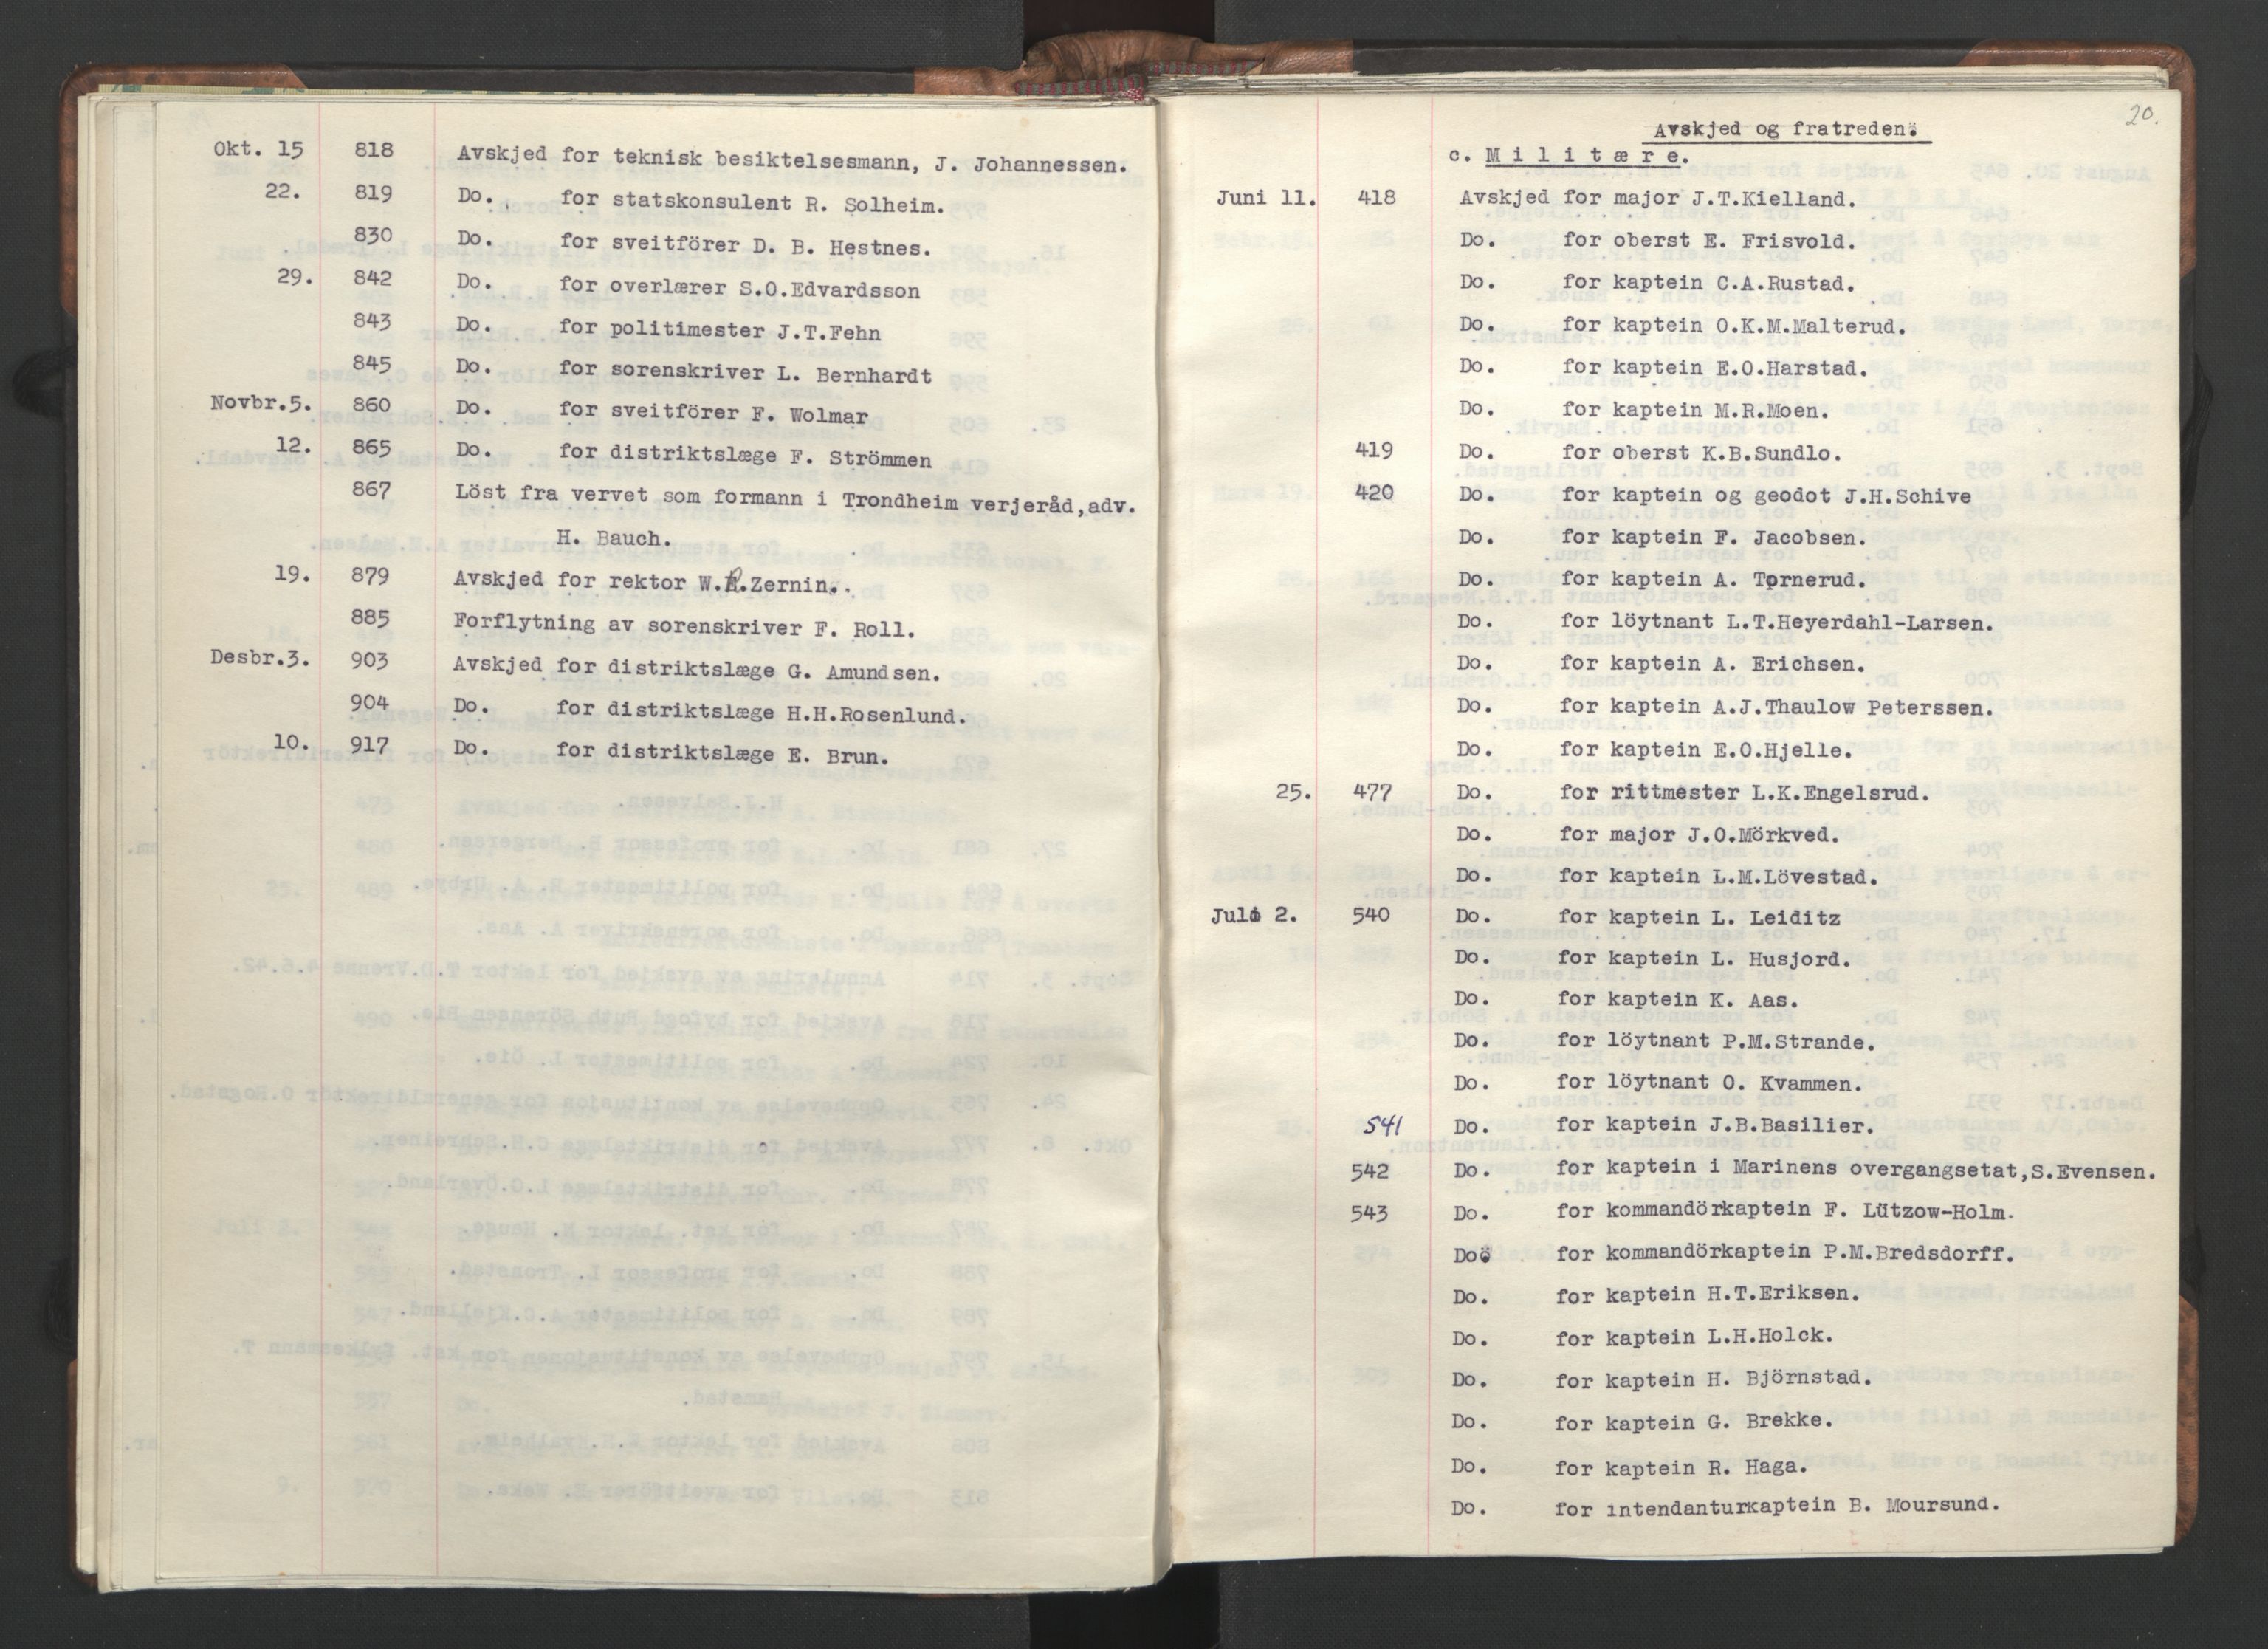 Okt. 15 818 Avskjed for teknisk besiktelsesmann, J. Johannessen.
22. 819 Do. for statskonsulent R. Solheim.
830 Do. for sveitförer D. B. Hestnes.
29. 842 Do. for overlærer S.O.Edvardsson
843 Do. for politimester J.T.Fehn
845 Do. for sorenskriver L. Bernhardt
Novbr.5. 860 Do. for sveitförer F. Wolmar
12. 865 Do. for distriktslæge F. Strömmen
867 Löst fra vervet som formann i Trondheim verjeråd,adv.
H. Bauch.
19. 879 Avskjed for rektor W.R.Zernin..
885 Forflytning av sorenskriver F. Roll.
Desbr.3. 903 Avskjed for distriktslæge G. Amundsen.
904 Do. for distriktslæge H.H.Rosenlund.
10. 917 Do. for distriktslæge E. Brun.
20.
Avskjed og fratreden:
c. Militære.
Juni 11. 418 Avskjed for major J.T.Kielland.
Do. for oberst E. Frisvold.
Do. for kaptein C.A.Rustad.
Do. for kaptein O.K.M.Malterud.
Do. for kaptein E.O.Harstad.
Do. for kaptein M.R.Moen.
419 Do. for oberst K.B.Sundlo.
420 Do. for kaptein og geodot J.H.Schive
Do. for kaptein F. Jacobsen.
Do. for kaptein A. Tørnerud.
Do. for löytnant L.T.Heyerdahl-Larsen.
Do. for kaptein A. Erichsen.
Do. for kaptein A.J.Thaulow Peterssen.
Do. for kaptein E.O.Hjelle.
25. 477 Do. for rittmester L.K.Engelsrud.
Do. for major J.O.Mörkved.
Do. for kaptein L.M.Lövestad.
Juli 2. 540 Do. for kaptein L. Leiditz
Do. for kaptein L. Husjord.
Do. for kaptein K. Aas.
Do. for löytnant P.M.Strande.
Do. for löytnant O. Kvammen.
541 Do. for kaptein J.B.Basilier.
542 Do. for kaptein i Marinens overgangsetat,S.Evensen.
543 Do. for kommandörkaptein F. Lützow-Holm.
Doö for kommandörkaptein P.M.Bredsdorff.
Do. for kaptein H.T.Eriksen.
Do. for kaptein L.H.Holck.
Do. for kaptein H. Björnstad.
Do. for kaptein G. Brekke.
Do. for kaptein R. Haga.
Do. for intendanturkaptein B. Moursund.